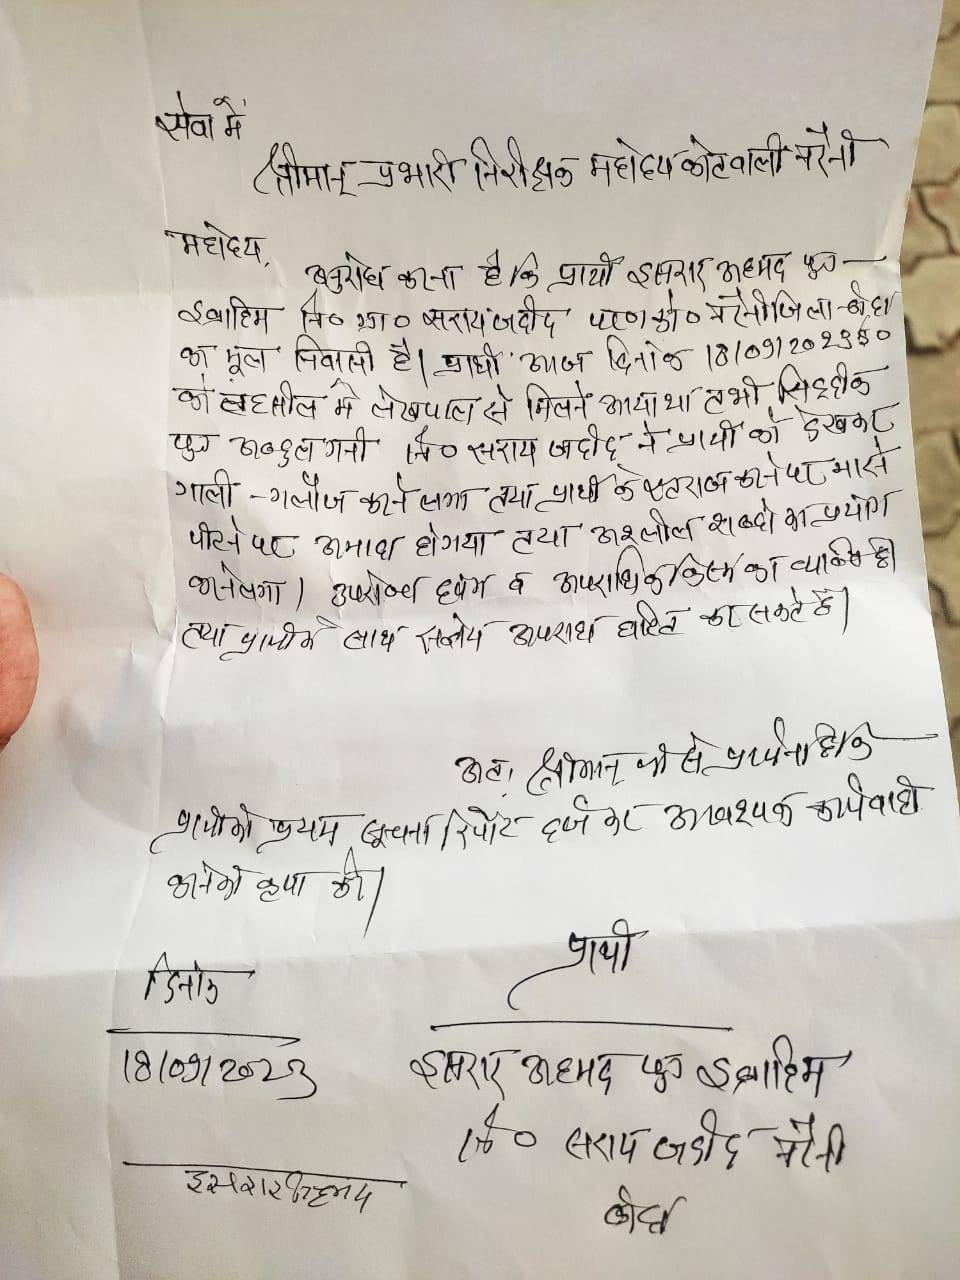 सेवा में
श्रीमान् प्रभारी निरीक्षक महोदय कोतवाली नरैनी
महोदय,
अनुरोध करना है कि प्रार्थी इसरार अहमद पुत्र
इब्राहिम नि० ग्रा० सराय जदीद थाना को० नरैनी जिला-बाँदा
का मूल निवासी है। प्रार्थी आज दिनांक 18/09/2023 ई०
को तहसील में लेखपाल से मिलने आया था तभी सिद्दीक
पुत्र अब्दुल गनी नि० सराय जदीद ने प्रार्थी को देखकर
गाली-गलौज करने लगा तथा प्रार्थी के एतराज करने पर मारने
पीटने पर अमादा हो गया तथा अश्लील शब्दो का प्रयोग
करने लगा। उपरोक्त दबंग व अपराधिक किस्म का व्यक्ति है
तथा प्रार्थी के साथ संज्ञेय अपराध घटित कर सकते हैं।
अतः श्रीमान् जी से प्रार्थना है कि
प्रार्थी की प्रथम सूचना रिपोर्ट दर्ज कर आवश्यक कार्यवाही
करने की कृपा करें।
दिनांक
प्रार्थी
18/09/2023
इसरार अहमद पुत्र इब्राहिम
नि० सराय जदीद नरैनी
बाँदा
इसरार अहमद